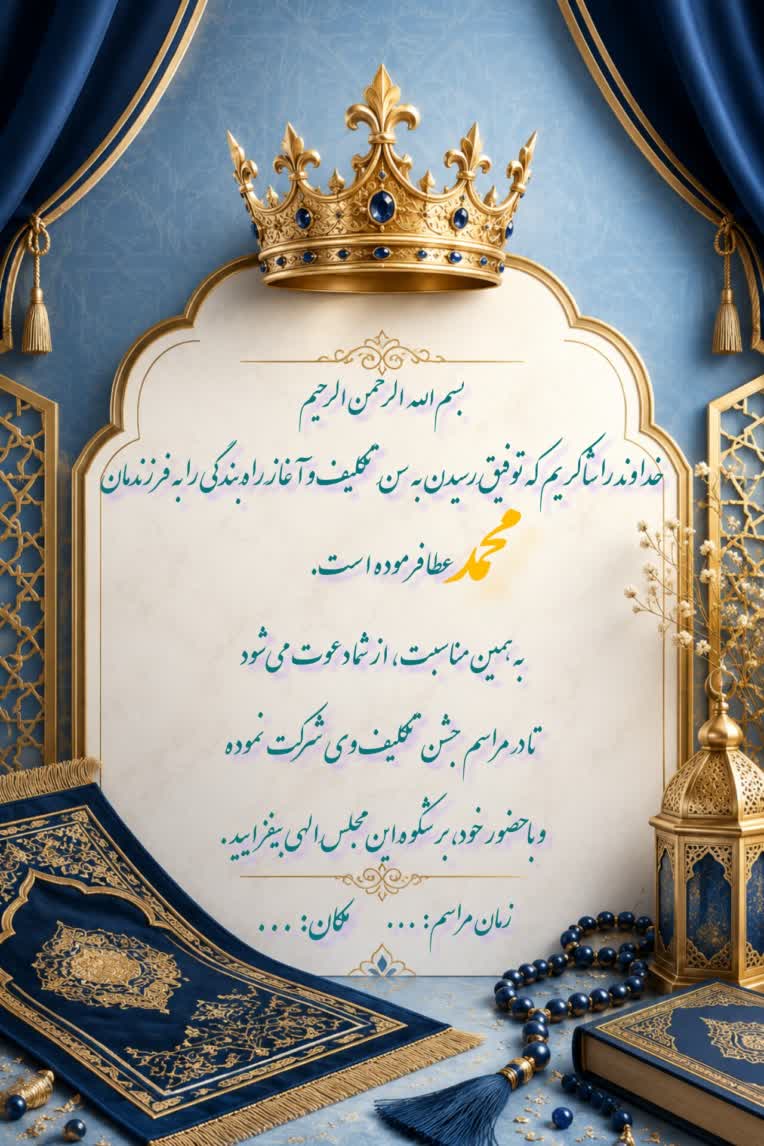 بسم الله الرحمن الرحیم
خداوند را شاکریم که توفیق رسیدن به سن تکلیف و آغاز راه بندگی را به فرزندمان
محمد عطا فرموده است.
به همین مناسبت، از شما دعوت می‌شود
تا در مراسم جشن تکلیف وی شرکت نموده
و با حضور خود، بر شکوه این مجلس الهی بیفزایید.
زمان مراسم: ... مکان: ...